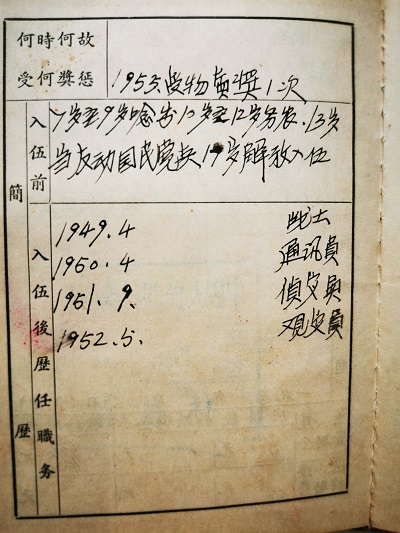 何時何故
受何獎惩
1953.受物質獎1次
簡歷
入伍前
7岁至9岁唸书10岁至12岁务农.13岁
当反动国民党兵19岁解放入伍
入伍後歷任職务
1949.4 战士
1950.4 通讯員
1951.9. 偵察員
1952.5. 观察員